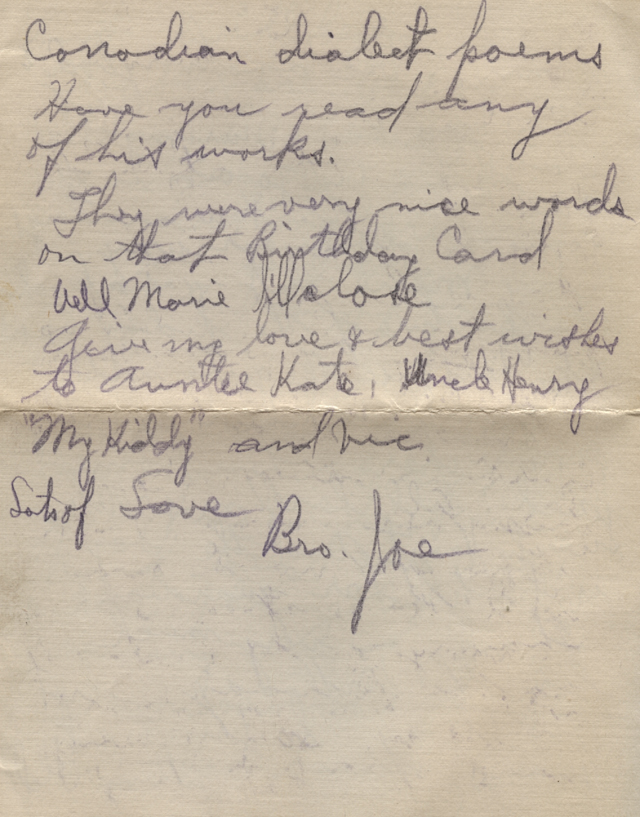 Canadian dialect poems
Have you read any
of his works.
They were very nice words
on that Birthday Card
Well Marie I'll close
Give my love & best wishes
to Auntie Kate, Uncle Henry
"My Kiddy" and Vic
Lots of Love
Bro. Joe